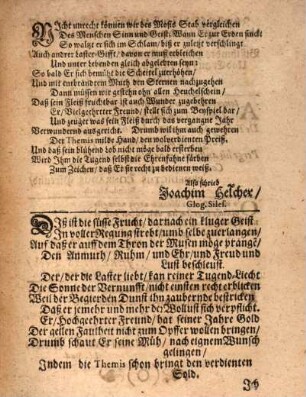 Nicht unrecht können wir des Mosis Stab vergleichen
Des Menschen Sinn und Geist. Wann Er zur Erden sinckt
So waltzt er sich im Schlam / biß er zuletzt verschlingt
Auch andrer Laster-Gifft / davon er muß erbleichen
Und unter bebenden gleich abgelebten seyn:
So bald Er sich bemüht die Scheitel zuerhöhen /
Und mit entbrandtem Muth den Sternen nachzugehen
Dann müssen wir gestehn ohn allen Heuchelschein /
Daß sein Fleiß fruchtbar ist auch Wunder zugebehren
Er / Vielgeehrter Freund / stellt sich zum Beyspiel dar /
Und zeiget was sein Fleiß durch das vergangne Jahr
Verwundernd ausgericht. Drumb will ihm auch gewehren
Der Themis milde Hand / den wolverdienten Preiß.
Und daß sein blühend lob nicht möge bald ersterben
Wird Ihm die Tugend selbst die Ehrenfahne färben
Zum Zeichen / daß Er sie recht zu bedienen weiß.
Also schrieb
Joachim Helcher /
Glog. Siles.
Diß ist die süsse Frucht / darnach ein kluger Geist.
In voller Regung strebt / und selbe zuerlangen /
Auf daß er auff dem Thron der Musen möge prangē /
Den Anmuth / Ruhm / und Ehr / und Freud und
Lust beschleust.
Der / der die Laster liebt / kan reiner Tugend Liecht
Die Sonne der Vernunfft / nicht einsten recht erblicken
Weil der Begierden Dunst ihn zaubernde bestricken
Daß er je mehr und mehr der Wollust sich verpflicht.
Er / Hochgeehrter Freund / hat seiner Jahre Gold
Der geilen Faulheit nicht zum Opffer wollen bringen /
Drumb schaut Er seine Müh / nach eignem Wunsch
gelingen /
Indem die Themis schon bringt den verdienten
Sold.